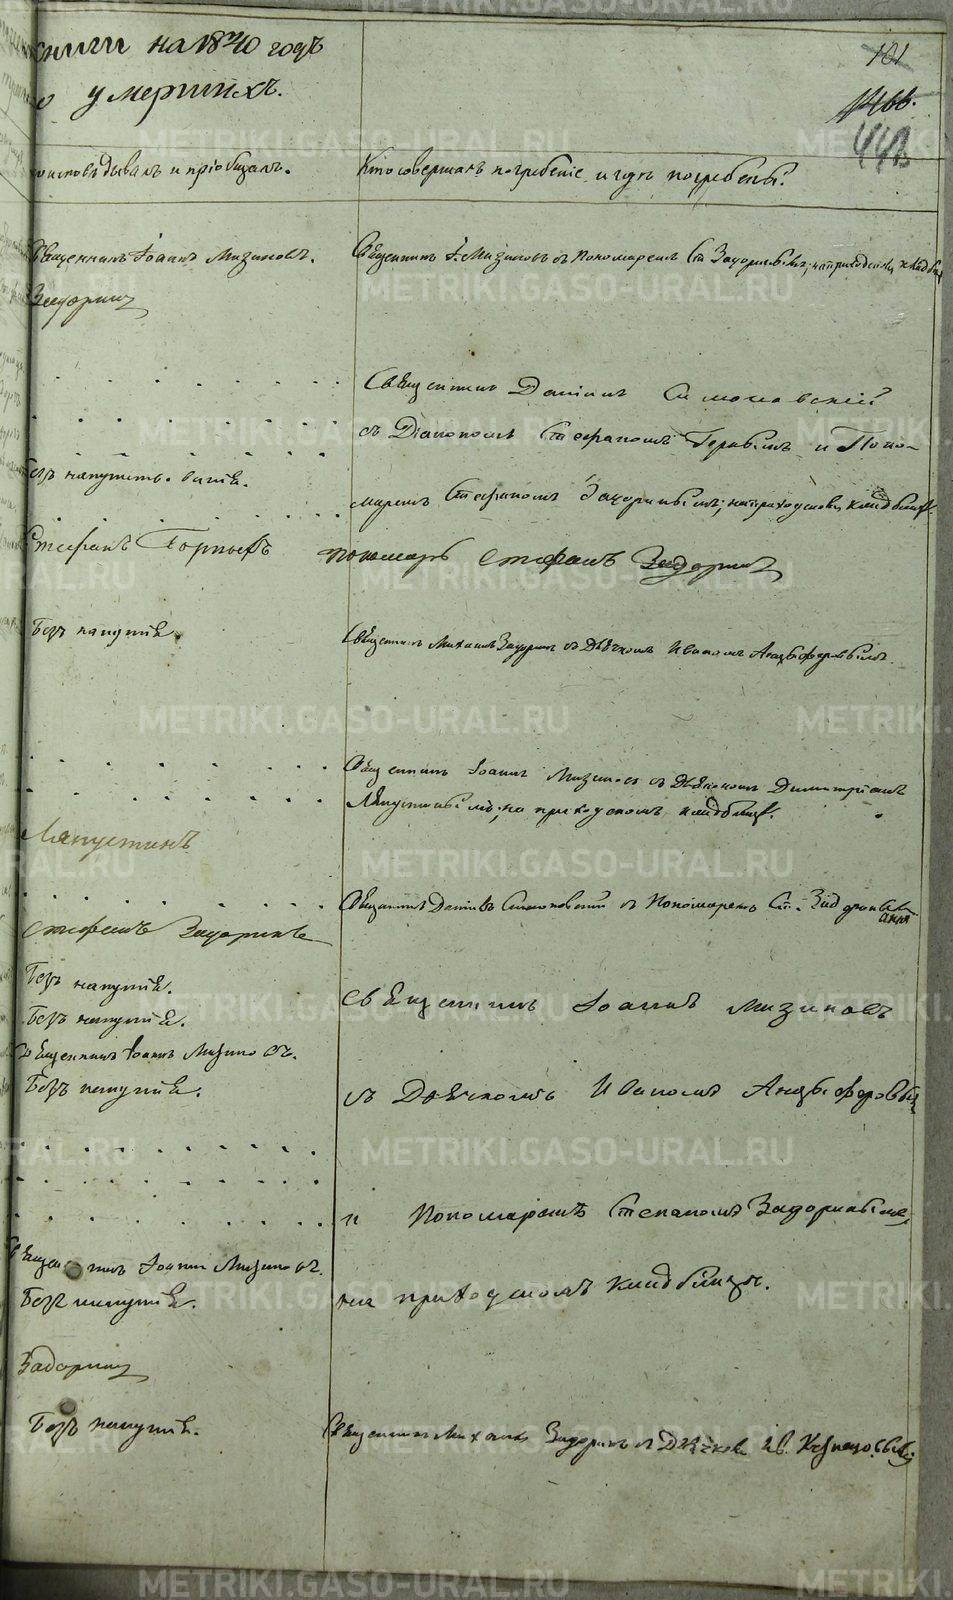 книги на 1840 годъ
101
о умершихъ.
1466.
448
исповѣдывалъ и пріобщалъ.
Кто совершалъ погребеніе и гдѣ погребены.
Священникъ Іоаннъ Мизиновъ.
Священникъ І. Мизиновъ съ пономаремъ Ст. Задоринымъ; на приходскомъ кладбищѣ
Задоринъ
Священникъ Даніилъ
съ Діакономъ Стефаномъ и Поно-
Безъ напутствованія.
маремъ Стефаномъ Задоринымъ; на приходскомъ кладбищѣ.
Стефанъ Горныхъ
пономарь Стефанъ Задоринъ
Безъ напутія.
Священникъ Михаилъ Задоринъ съ Дьячкомъ Иваномъ Анцыферовымъ.
Священникъ Іоаннъ Мизиновъ съ Діакономъ Димитріемъ
Ляпустинымъ; на приходскомъ кладбищѣ.
Ляпустинъ
Священникъ Даніилъ съ Пономаремъ Ст. Задоринымъ
Стефанъ Задоринъ
Безъ напутія.
Священникъ Іоаннъ Мизиновъ
Безъ напутія.
Священникъ Іоаннъ Мизиновъ.
Безъ напутія.
съ Дьячкомъ Иваномъ Анцыферовымъ
и Пономаремъ Степаномъ Задоринымъ,
Священникъ Іоаннъ Мизиновъ.
Безъ напутія.
на приходскомъ кладбищѣ.
Задоринъ
Безъ напутія.
Священникъ Михаилъ Задоринъ съ Дьячкомъ Ив. Кузнецовымъ
METRIKI.GASO-URAL.RU